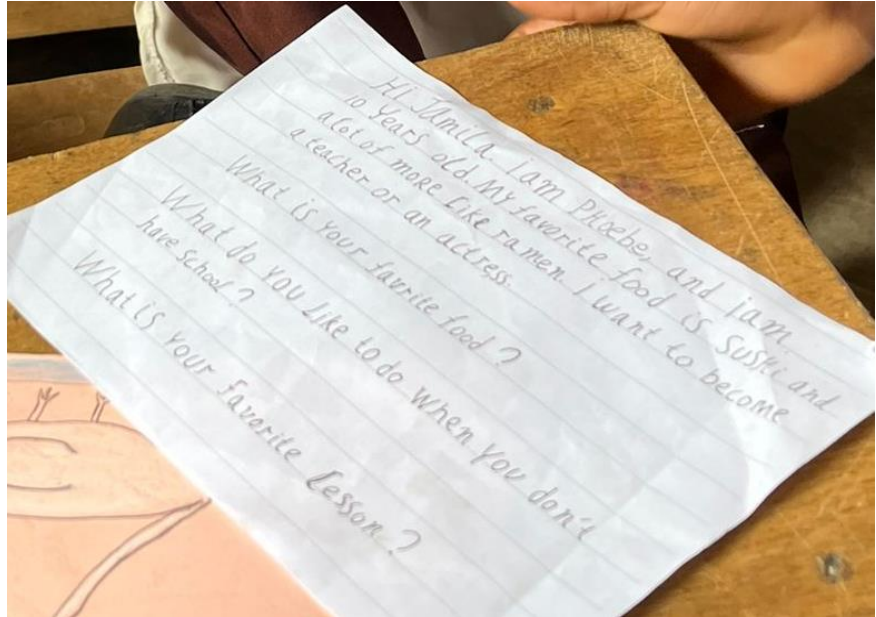 Hi Jamila. i am PHoebe, and iam
10 Years old. My favorite food is SUSHi and
alot of more Like ramen. I want to become
a teacher or an actress.
What is Your favrite food?
What do YOU Like to do When you don't
have School?
What is Your Favorite Lesson?